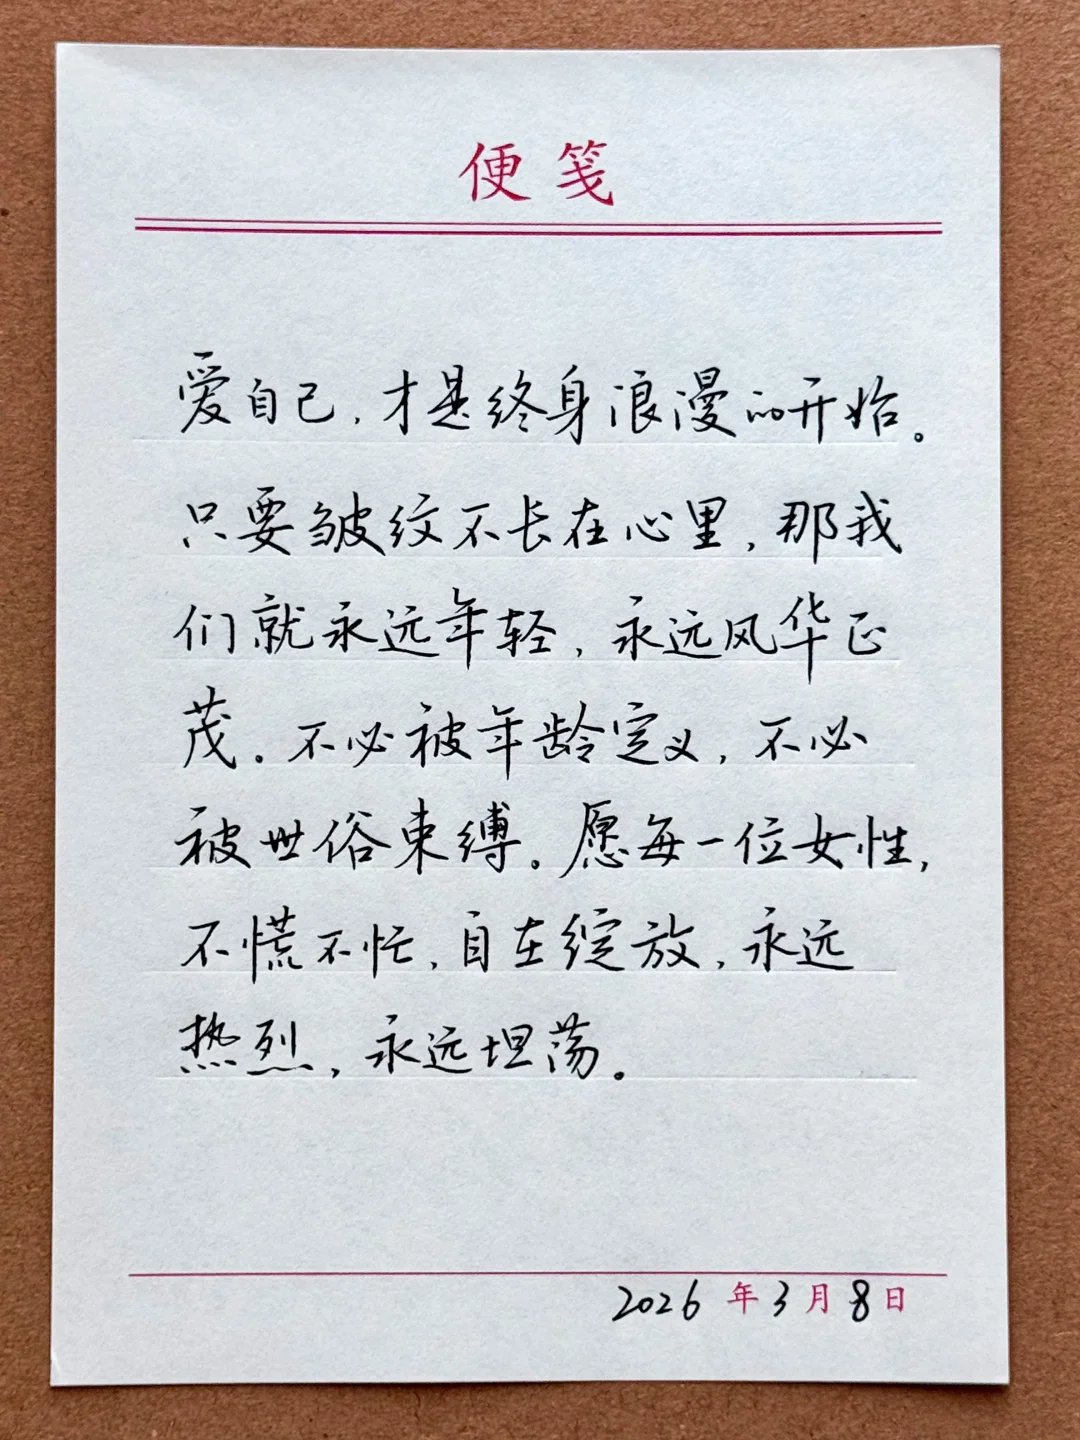 便笺
爱自己，才是终身浪漫的开始。
只要皱纹不长在心里，那我
们就永远年轻，永远风华正
茂。不必被年龄定义，不必
被世俗束缚。愿每一位女性，
不慌不忙，自在绽放，永远
热烈，永远坦荡。
2026年3月8日